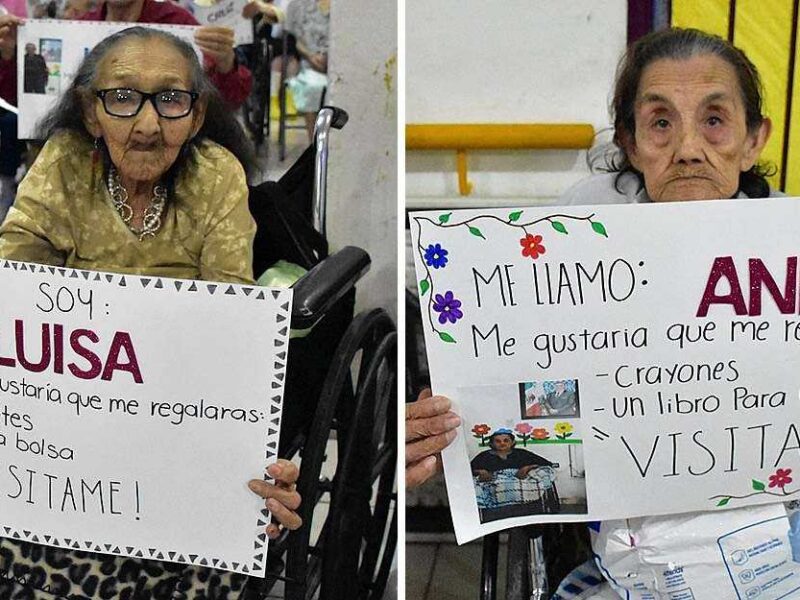 CRUZ
SOY:
LUISA
ustaría que me regalaras:
bolsa
SITAME!
ME LLAMO:
Me gustaria que me
-Crayones
-un libro Para
VISITA